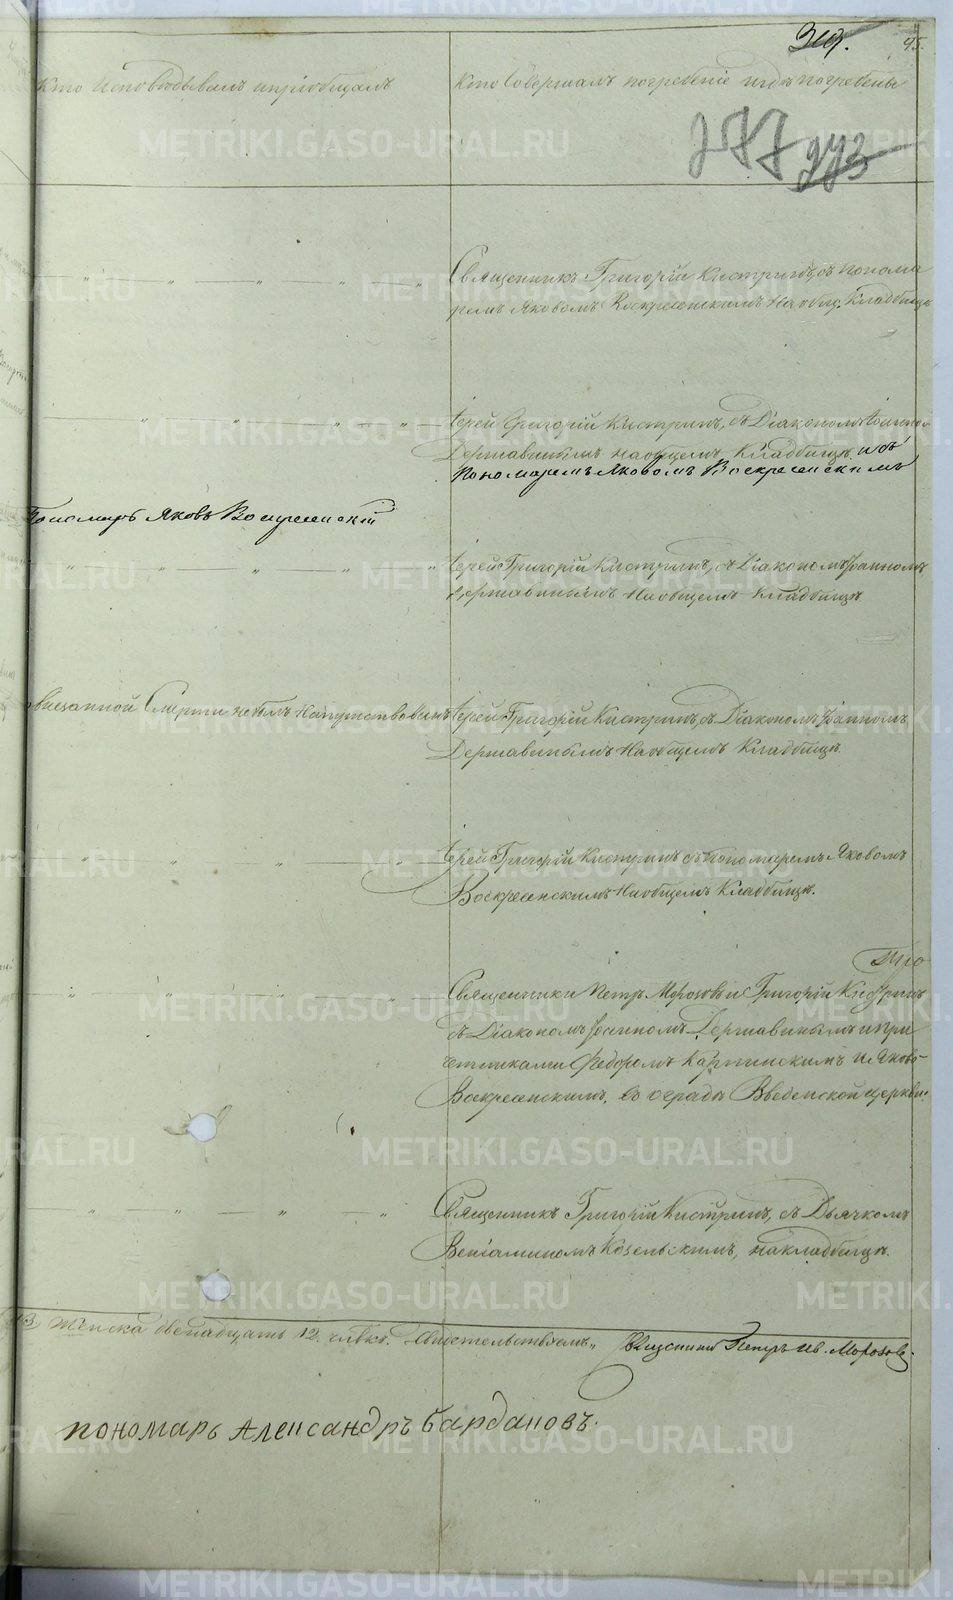 45.
Кто Исповѣдывалъ и пріобщалъ
Кто Совершалъ погребеніе и гдѣ погребены
277 273
Священникъ Григорій Кистринъ, съ понома
ремъ Яковомъ Воскресенскимъ На общ. Кладбищѣ
Іерей Григорій Кистринъ, съ Діакономъ Іоанномъ
Державинымъ на общемъ Кладбищѣ и съ
Пономаремъ Яковомъ Воскресенскимъ
Пономарь Яковъ Воскресенскій
Іерей Григорій Кистринъ, съ Діакономъ Іоанномъ
Державинымъ На общемъ Кладбищѣ.
внезапной Смерти не былъ Напутствованъ
Іерей Григорій Кистринъ, съ Діакономъ Іоанномъ
Державинымъ На общемъ Кладбищѣ.
Іерей Григорій Кистринъ съ Пономаремъ Яковомъ
Воскресенскимъ На общемъ Кладбищѣ.
Священники Петръ Морозовъ и Григорій Кистринъ
съ Діакономъ Іоанномъ Державинымъ и при
четниками Федоромъ Карпинскимъ и Яковъ
Воскресенскимъ, въ оградѣ Введенской церкви.
Священникъ Григорій Кистринъ, съ Дьячкомъ
Веніаминомъ Козельскимъ, на кладбищѣ.
женска двенадцать 12. челвкъ. Свидетельствуемъ, Петръ Ив. Морозовъ.
пономарь Александръ Бардановъ.
METRIKI.GASO-URAL.RU